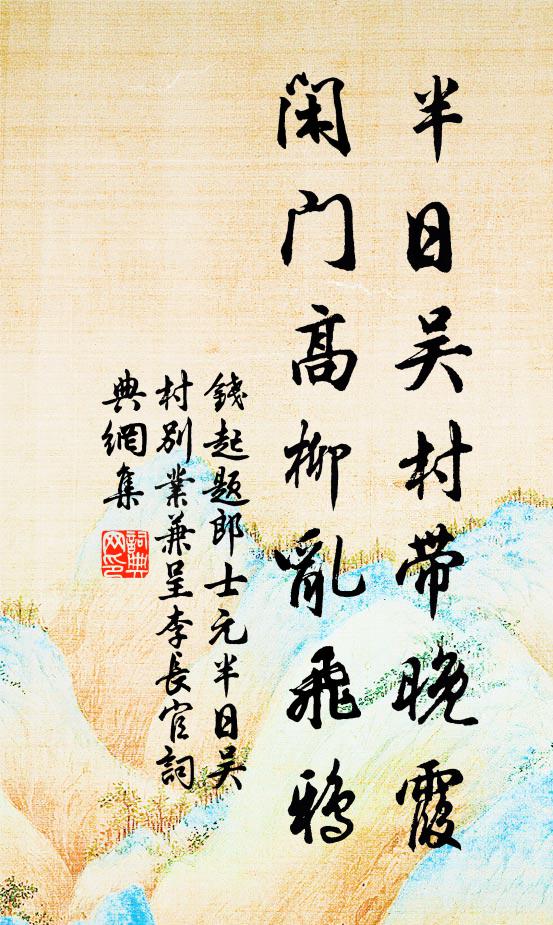 半日吴村带晚霞
闲门高柳亂飛鸦
錢起题郎士元半日吴
村别業兼呈李長官詞
典網集
詞典
网印